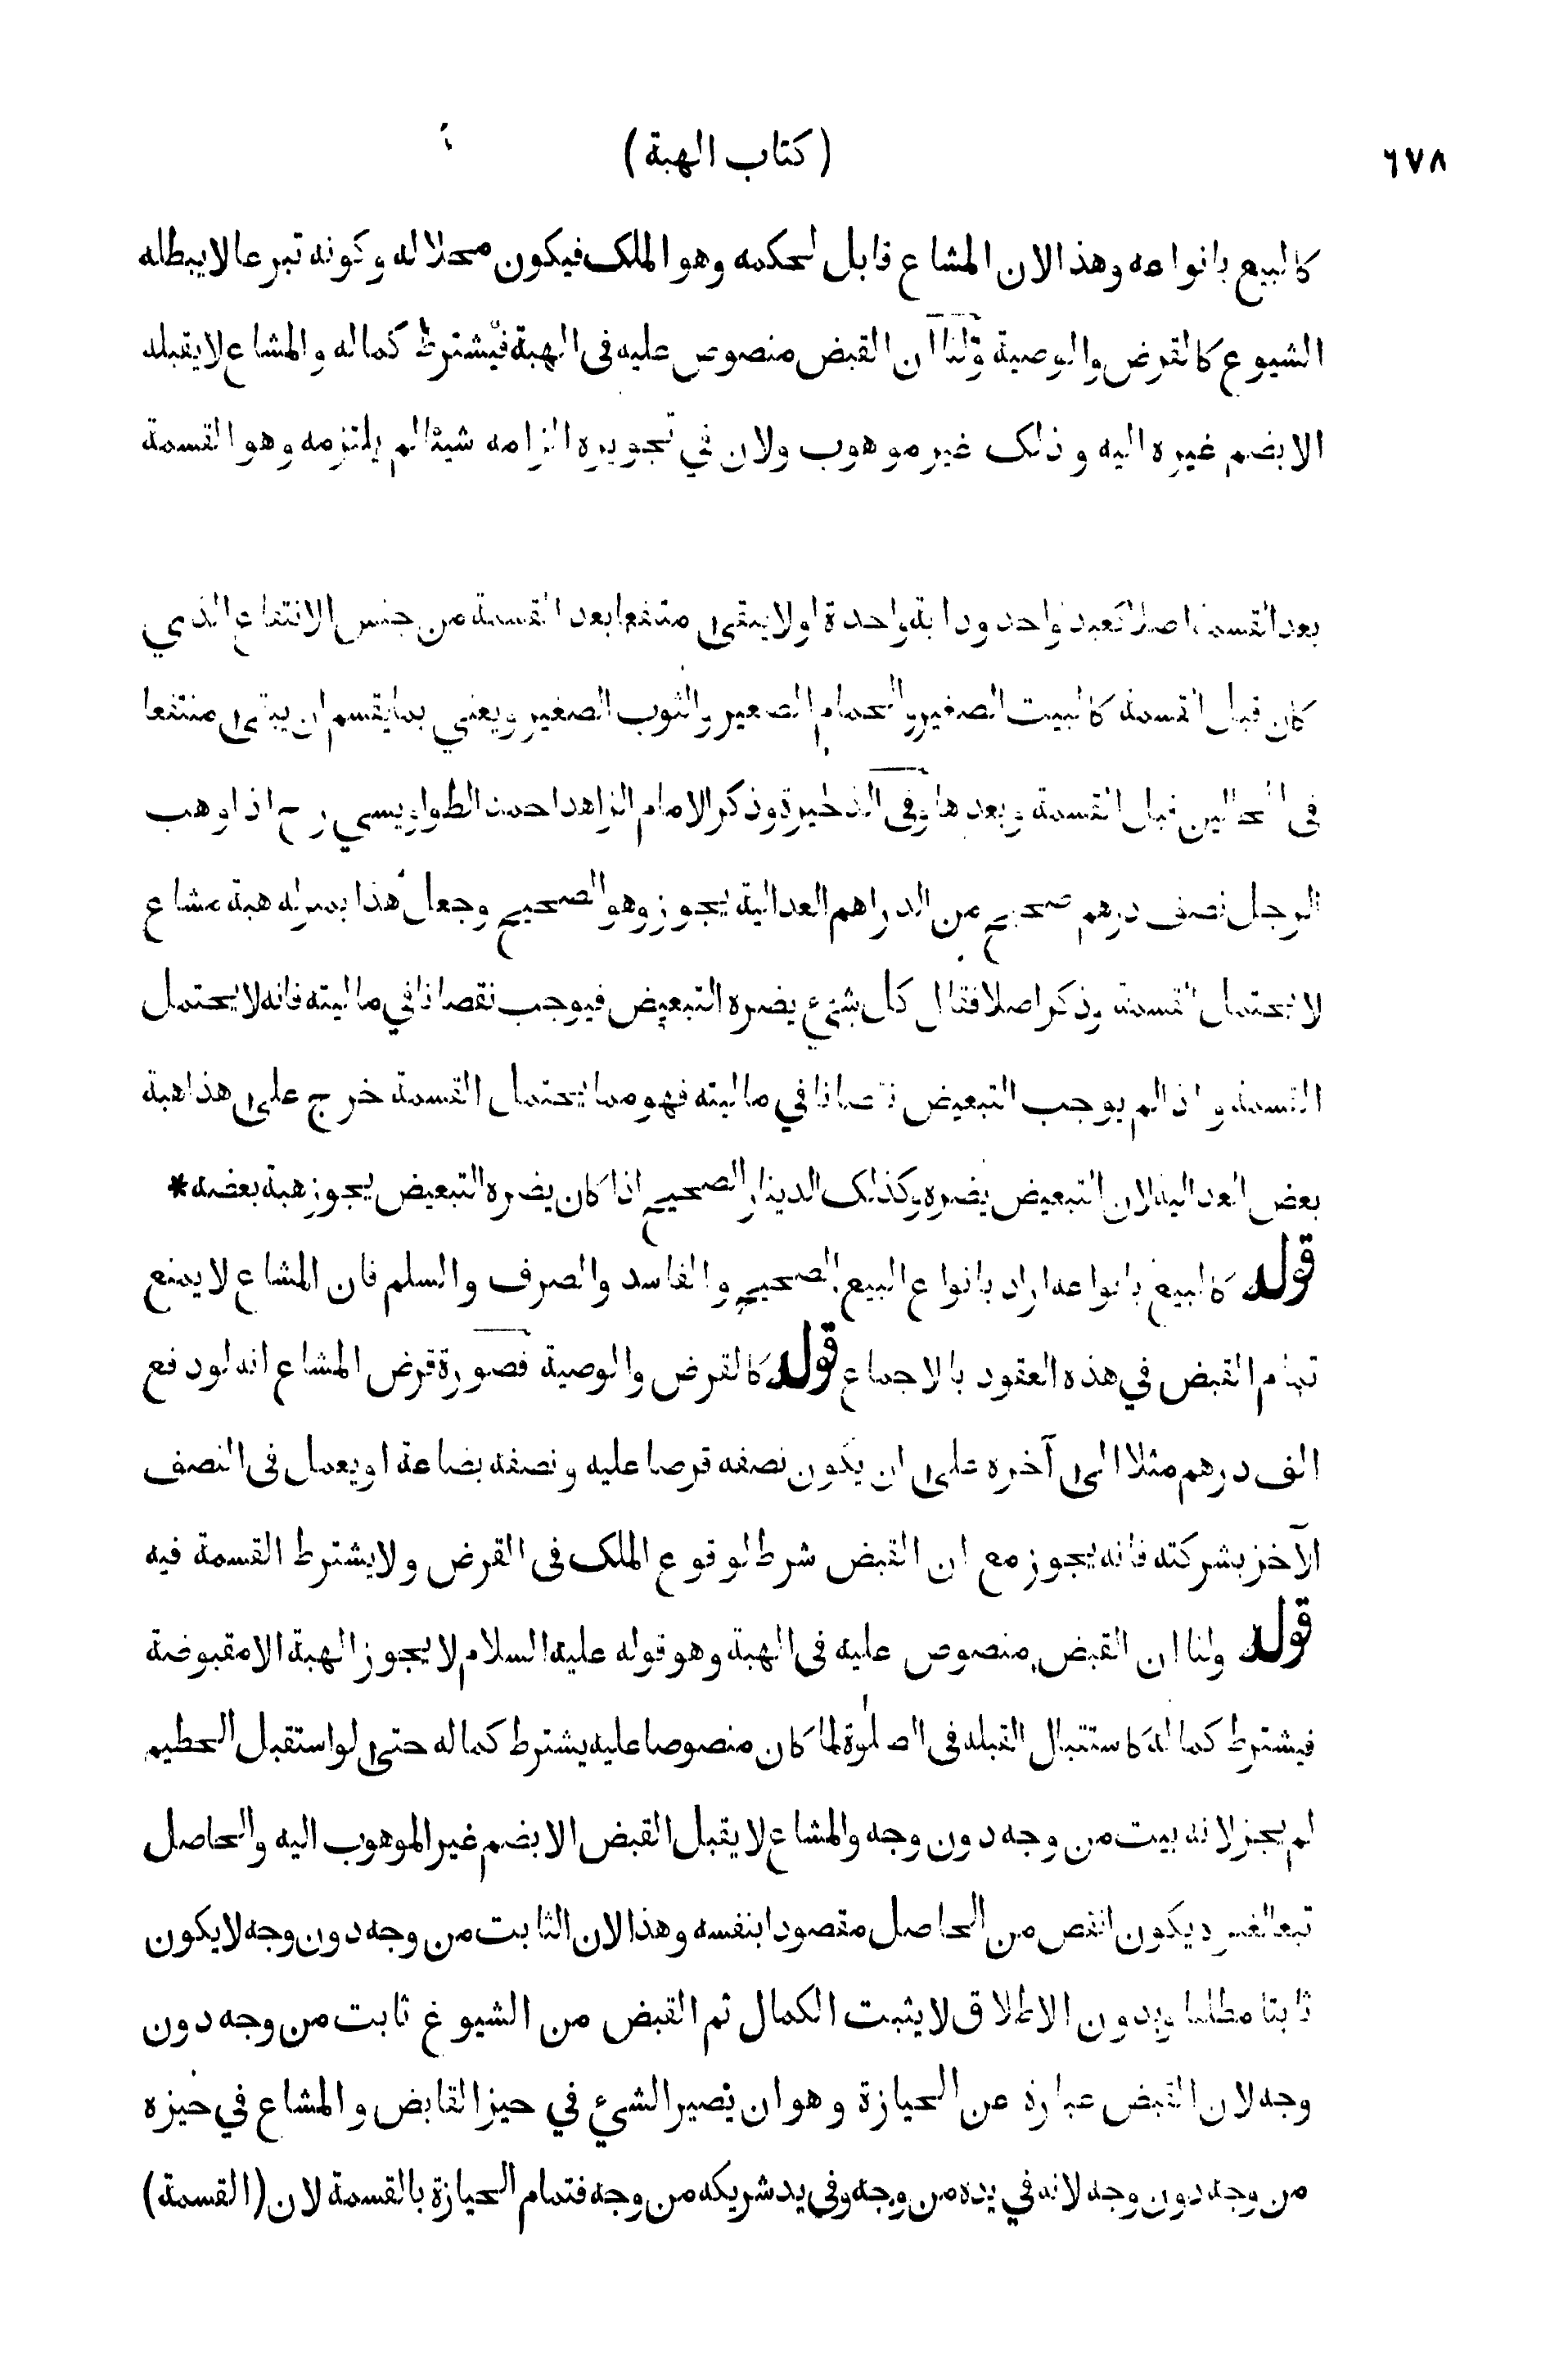 ٦٧٨
(كتاب الهبة)
كالبيع بانواعه وهذا لان المشاع قابل لحكمه وهو الملك فيكون محلا له وكونه تبرعا لا يبطله
الشيوع كالقرض والوصية ولنا ان القبض منصوص عليه فى الهبة فيشترط كماله والمشاع لا يقبله
الا بضم غيره اليه وذلك غير موهوب ولان في تجويزه الزامه شيئا لم يلتزمه وهو القسمة
بعد القسمة اصلا كعبد واحد ودابة واحدة او لا يبقى منتفعا بعد القسمة من جنس الانتفاع الذي
كان قبل القسمة كالبيت الصغير والحمام الصغير والثوب الصغير ويعني بما يقسم ان يبقى منتفعا
فى الحالين قبل القسمة وبعدها وفى الذخيرة وذكر الامام الزاهد احمد الطواويسي رح اذا وهب
الرجل نصف درهم صحيح من الدراهم العدالية يجوز وهو الصحيح وجعل هذا بمنزلة هبة مشاع
لا يحتمل القسمة وذكر اصلا فقال كل شيء يضره التبعيض فيوجب نقصانا في ماليته فانه لا يحتمل
القسمة واذا لم يوجب التبعيض نقصانا في ماليته فهو مما يحتمل القسمة خرج على هذا هبة
بعض العدالية لان التبعيض يضره وكذلك الدينار الصحيح اذا كان يضره التبعيض يجوز هبة بعضه*
قوله كالبيع بانواعه اراد بانواع البيع الصحيح والفاسد والصرف والسلم فان المشاع لا يمنع
تمام القبض في هذه العقود بالاجماع قوله كالقرض والوصية فصورة قرض المشاع انه لو دفع
الف درهم مثلا الى آخره على ان يكون نصفه قرضا عليه ونصفه بضاعة او يعمل فى النصف
الآخر بشركته فانه يجوز مع ان القبض شرط لوقوع الملك فى القرض ولا يشترط القسمة فيه
قوله ولنا ان القبض منصوص عليه فى الهبة وهو قوله عليه السلام لا يجوز الهبة الا مقبوضة
فيشترط كماله كاستقبال القبله فى الصلوة لما كان منصوصا عليه يشترط كماله حتى لو استقبل الحطيم
لم يجز لانه بيت من وجه دون وجه والمشاع لا يقبل القبض الا بضم غير الموهوب اليه والحاصل
تبعا لغيره يكون انقص من الحاصل مقصودا بنفسه وهذا لان الثابت من وجه دون وجه لا يكون
ثابتا مطلقا وبدون الاطلاق لا يثبت الكمال ثم القبض من الشيوع ثابت من وجه دون
وجه لان القبض عبارة عن الحيازة وهو ان يصير الشئ في حيز القابض والمشاع في حيزه
من وجه دون وجه لانه في يده من وجه وفى يد شريكه من وجه فتمام الحيازة بالقسمة لان (القسمة)